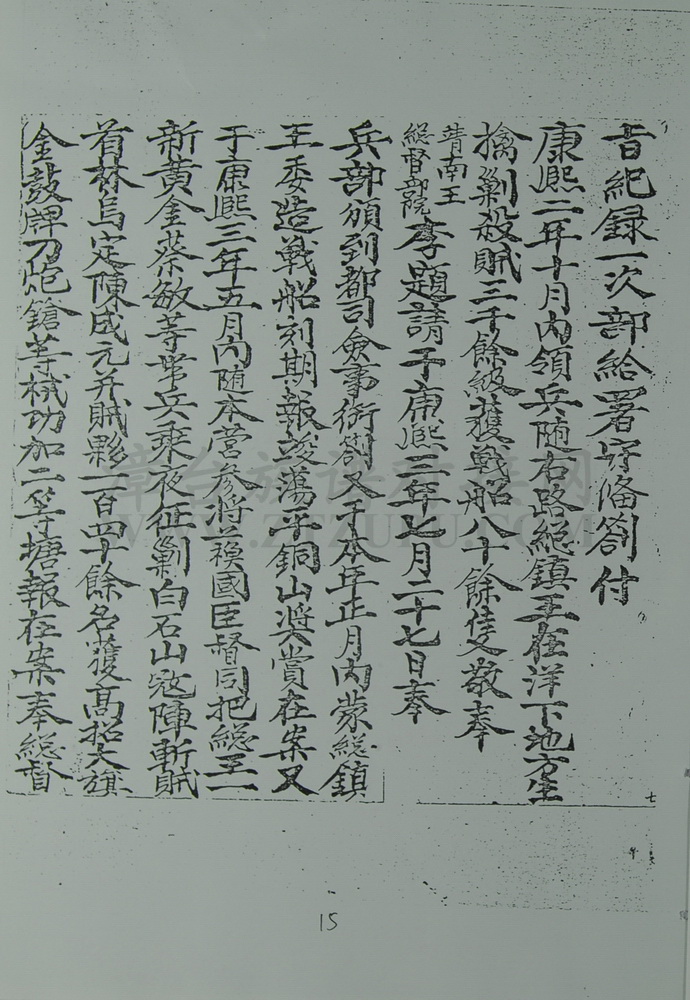 旨紀録一次部給署守俻劄付
康熙二年十月內領兵随右路總鎮王在洋下地方生
擒剿殺賊三千餘級獲戰船八十餘隻敬奉
靖南王
總督部院李題請于康熙三年七月二十七日奉
兵部頒到都司僉事銜劄又于本年正月內蒙總鎮
王委造戰船刻期報竣蕩平銅山奨賞在案又
于康熙三年五月內随本營参将兰䄛國臣督同把總王一
新黄金蔡敏等帯兵乘夜征剿白石山寇陣斬賊
首林烏定陳成元并賊夥一百四十餘名獲髙招大旗
金鼓牌刀炮鎗等械功加二等塘報在案奉總督
七
15